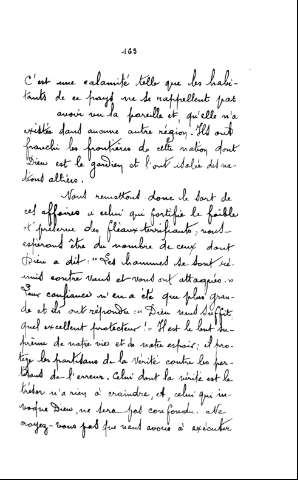 169
C'est une calamité telle que les habi-
tants de ce pays ne se rappellent pas
avoir vu la pareille et, qu'elle n'a
existée dans aucune autre région. Ils ont
franchi les frontières de cette nation dont
Dieu est le gardien et l'ont isolée des na-
tions alliées.
Nous remettons donc le sort de
ces affaires à celui qui fortifie le faible
et préserve des fléaux terrifiants, nous
espérons être du nombre de ceux dont
Dieu a dit : "Les hommes se sont ré-
unis contre vous et vous ont attaqués."
Leur confiance n'en a été que plus gran-
de et ils ont répondu : "Dieu nous suffit
quel excellent protecteur !" Il est le but su-
prême de notre vie et de notre espoir; il pro-
tège les partisans de la Vérité contre les par-
tisans de l'erreur. Celui dont la vérité est le
trésor n'a rien à craindre, et, celui qui in-
voque Dieu, ne sera pas confondu. Ne
croyez-vous pas que nous avons à exécuter